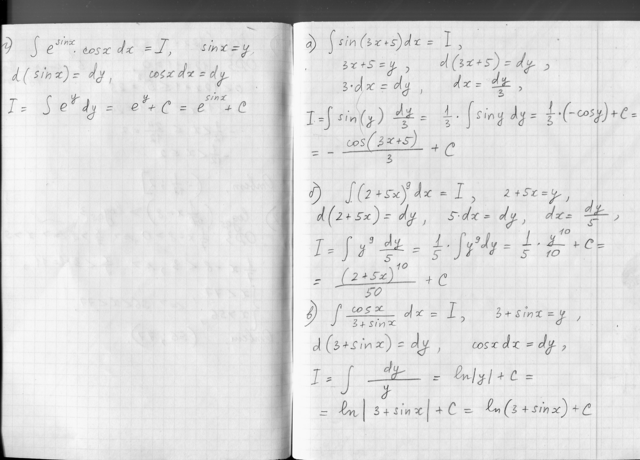 г) ∫ e^sinx · cosx dx = I, sinx = y
d(sinx) = dy, cosx dx = dy
I = ∫ e^y dy = e^y + C = e^sinx + C
а) ∫ sin(3x+5)dx = I,
3x+5 = y, d(3x+5) = dy,
3·dx = dy, dx = dy/3,
I = ∫ sin(y) dy/3 = 1/3 · ∫ siny dy = 1/3 · (-cosy) + C =
= - cos(3x+5)/3 + C
б) ∫ (2+5x)^9 dx = I, 2+5x = y,
d(2+5x) = dy, 5·dx = dy, dx = dy/5,
I = ∫ y^9 dy/5 = 1/5 · ∫ y^9 dy = 1/5 · y^10/10 + C =
= (2+5x)^10/50 + C
в) ∫ cosx/(3+sinx) dx = I, 3+sinx = y,
d(3+sinx) = dy, cosx dx = dy,
I = ∫ dy/y = ln|y| + C =
= ln|3+sinx| + C = ln(3+sinx) + C